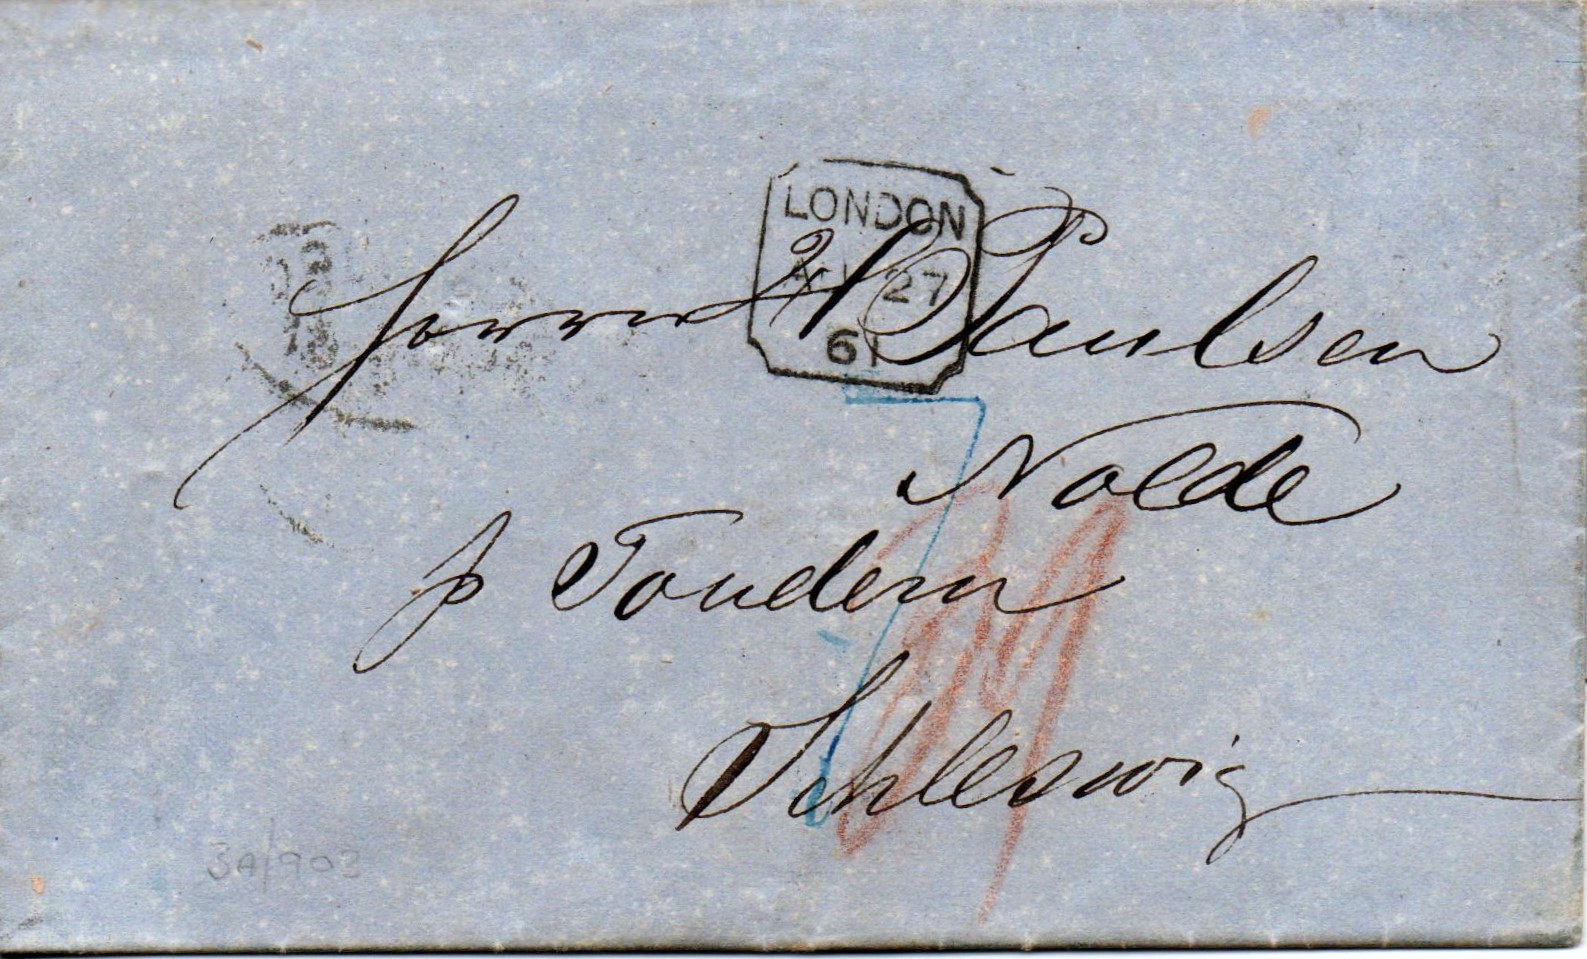 LONDON
27
61
Herrn H P Paulsen
Nolde
p Tondern
Schleswig
7
3A/903